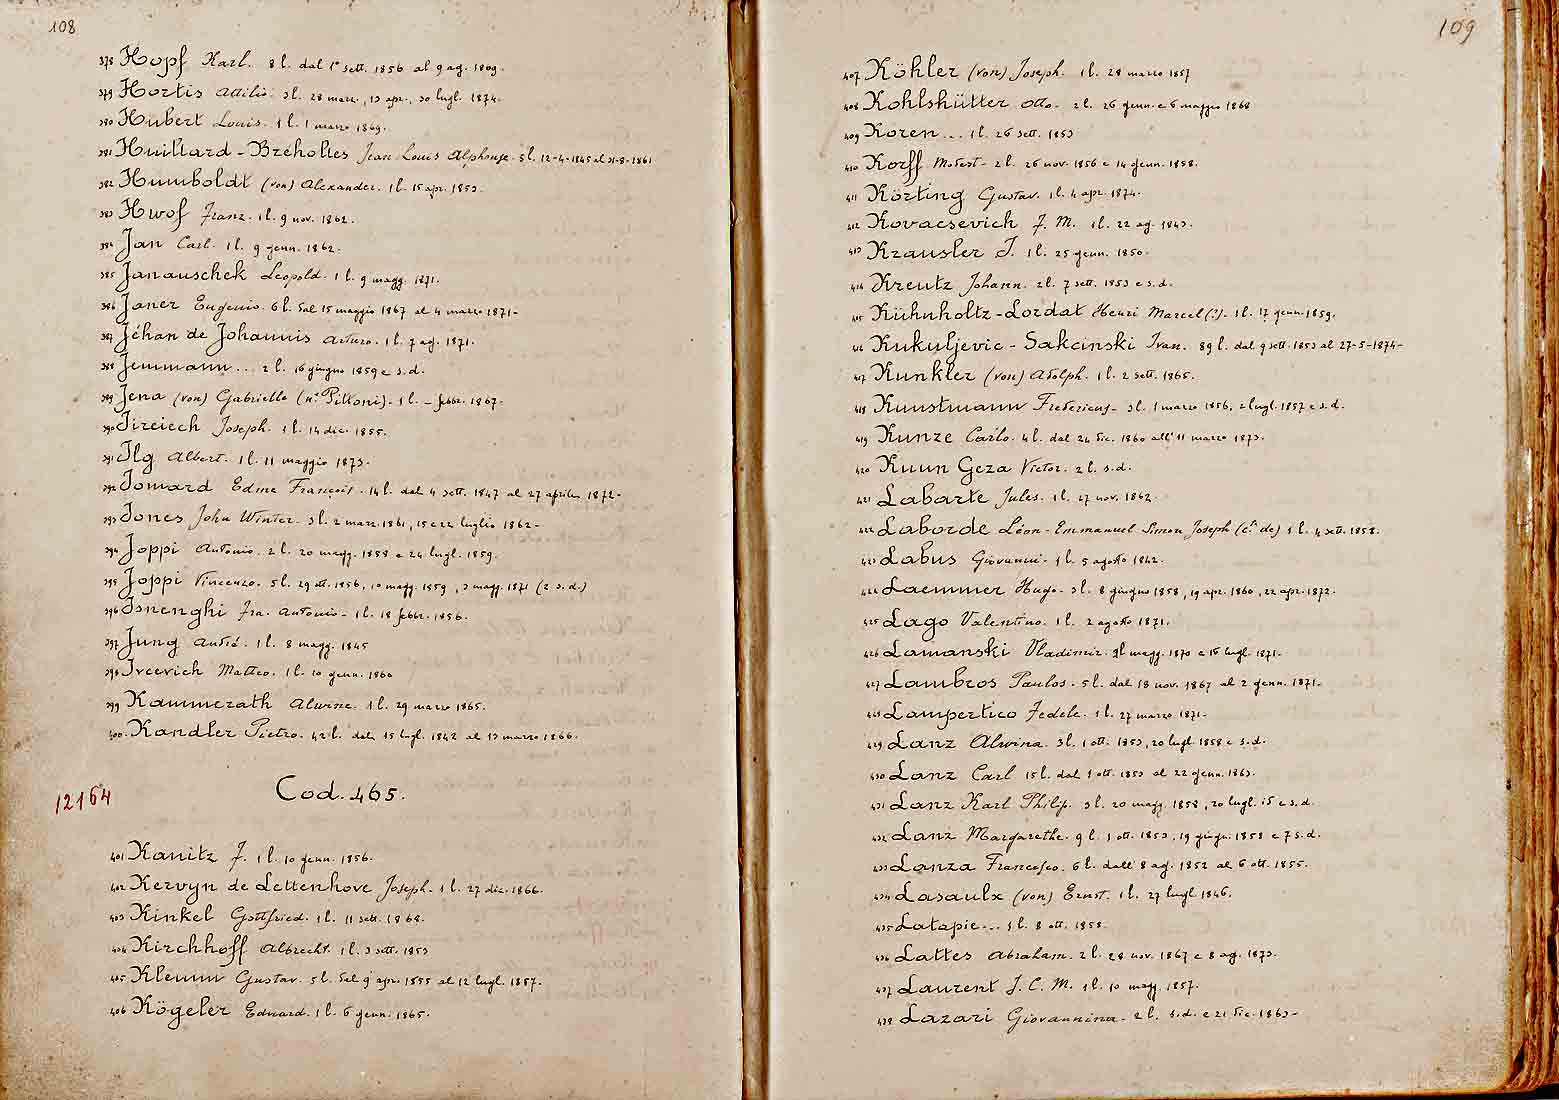 108
378 Hopf Karl. 8 l. dal 1° sett. 1856 al 9 ag. 1869.
379 Hortis Attilio. 3 l. 28 marz., 13 apr., 30 lugl. 1874.
380 Hubert Louis. 1 l. 1 marzo 1869.
381 Huillard-Bréholles Jean Louis Alphonse. 5 l. 12-4-1845 al 31-8-1861
382 Humboldt (von) Alexander. 1 l. 15 apr. 1853.
383 Hwof Franz. 1 l. 9 nov. 1862.
384 Jan Carl. 1 l. 9 genn. 1862.
385 Janauschek Leopold. 1 l. 9 magg. 1871.
386 Janer Eugenio. 6 l. dal 15 maggio 1867 al 4 marzo 1871-
387 Jéhan de Johannis Arturo. 1 l. 7 ag. 1871.
388 Jemmann... 2 l. 16 giugno 1859 e s.d.
389 Jena (von) Gabrielle (nª Pittoni). 1 l. – febbr. 1867.
390 Jireiech Joseph. 1 l. 14 dic. 1855.
391 Ilg Albert. 1 l. 11 maggio 1873.
392 Jomard Edme François. 14 l. dal 4 sett. 1847 al 27 aprile 1872-
393 Jones John Winter. 3 l. 2 marz. 1861, 15 e 22 luglio 1862-
394 Joppi Antonio. 2 l. 20 magg. 1858 e 24 lugl. 1859.
395 Joppi Vincenzo. 5 l. 29 ott. 1856, 10 magg. 1859, 3 magg. 1871 (2 s.d.)
396 Isnenghi Fra. Antonio - 1 l. 18 febbr. 1856.
397 Jung André. 1 l. 8 magg. 1845
398 Ivcevich Matteo. 1 l. 10 genn. 1860
399 Kammerath Alwine. 1 l. 29 marzo 1865.
400. Kandler Pietro. 42 l. dal 15 lugl. 1842 al 13 marzo 1866.
12164 Cod. 465.
401 Kanitz F. 1 l. 10 genn. 1856.
402 Kervyn de Lettenhove Joseph. 1 l. 27 dic. 1866.
403 Kinkel Gottfried. 1 l. 11 sett. 1868.
404 Kirchhoff Albrecht. 1 l. 3 sett. 1853
405 Klemm Gustav. 5 l. dal 9 apr. 1855 al 12 lugl. 1857.
406 Kögeler Eduard. 1 l. 6 genn. 1865.
109
407 Köhler (von) Joseph. 1 l. 28 marzo 1857
408 Kohlshütter Otto. 2 l. 26 genn. e 6 maggio 1868
409 Koren... 1 l. 26 sett. 1853
410 Korff Modest. 2 l. 26 nov. 1856 e 14 genn. 1858.
411 Körting Gustav. 1 l. 4 apr. 1874.
412 Kovacsevich F. M. 1 l. 22 ag. 1843.
413 Krausler I. 1 l. 25 genn. 1850.
414 Kreutz Johann. 2 l. 7 sett. 1853 e s.d.
415 Kühnholtz-Lordat Henri Marcel (?). 1 l. 17 genn. 1859.
416 Kukuljevic - Sakcinski Ivan. 89 l. dal 9 sett. 1853 al 27-5-1874-
417 Kunkler (von) Adolph. 1 l. 2 sett. 1865.
418 Kunstmann Fredericus. 3 l. 1 marzo 1856, 2 lugl. 1857 e s.d.
419 Kunze Carlo. 4 l. dal 24 dic. 1860 all'11 marzo 1873.
420 Kuun Geza Victor. 2 l. s.d.
421 Labarte Jules. 1 l. 27 nov. 1862.
422 Laborde Léon-Emmanuel Simon Joseph (cᵗᵉ de) 1 l. 4 sett. 1858.
423 Labus Giovanni. 1 l. 5 agosto 1842.
424 Laemmer Hugo. 3 l. 8 giugno 1858, 19 apr. 1860, 22 apr. 1872.
425 Lago Valentino. 1 l. 2 agosto 1871.
426 Lamanski Vladimir. 2 l. magg. 1870 e 16 lugl. 1871.
427 Lambros Paulos. 5 l. dal 18 nov. 1867 al 2 genn. 1871.
428 Lampertico Fedele. 1 l. 27 marzo 1871.
429 Lanz Alwina. 3 l. 1 ott. 1853, 20 lugl. 1858 e s.d.
430 Lanz Carl 15 l. dal 1 ott. 1853 al 22 genn. 1863.
431 Lanz Karl Philip. 3 l. 20 magg. 1858, 20 lugl. 15 e s.d.
432 Lanz Margarethe. 9 l. 1 ott. 1853, 19 giugn. 1858 e 7 s.d.
433 Lanza Francesco. 6 l. dall'8 ag. 1852 al 6 ott. 1855.
434 Lasaulx (von) Ernst. 1 l. 27 lugl. 1846.
435 Latapie... 1 l. 8 ott. 1858.
436 Lattes Abraham. 2 l. 28 nov. 1867 e 8 ag. 1873.
437 Laurent J. C. M. 1 l. 10 magg. 1857.
438 Lazari Giovannina. 2 l. s.d. e 21 dic. 1863-